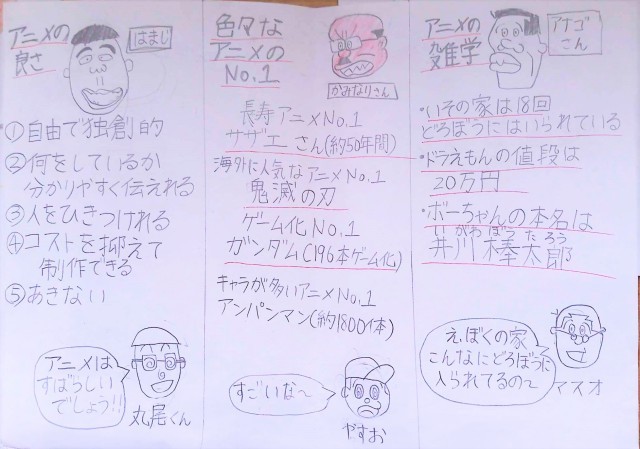 アニメの
良さ
はまじ
①自由で独創的
②何をしているか
分かりやすく伝えれる
③人をひきつけれる
④コストを抑えて
制作できる
⑤あきない
アニメは
すばらしい
でしょう!!
丸尾くん
色々な
アニメの
No.1
かみなりさん
長寿アニメNo.1
サザエさん(約50年間)
海外に人気なアニメNo.1
鬼滅の刃
ゲーム化No.1
ガンダム(196本ゲーム化)
キャラが多いアニメNo.1
アンパンマン(約1800体)
すごいな〜
やすお
アニメの
雑学
アナゴ
さん
・いその家は18回
どろぼうにはいられている
・ドラえもんの値段は
20万円
・ボーちゃんの本名は
いがわぼうたろう
井川棒太郎
え、ぼくの家
こんなにどろぼうに
入られてるの〜
マスオ